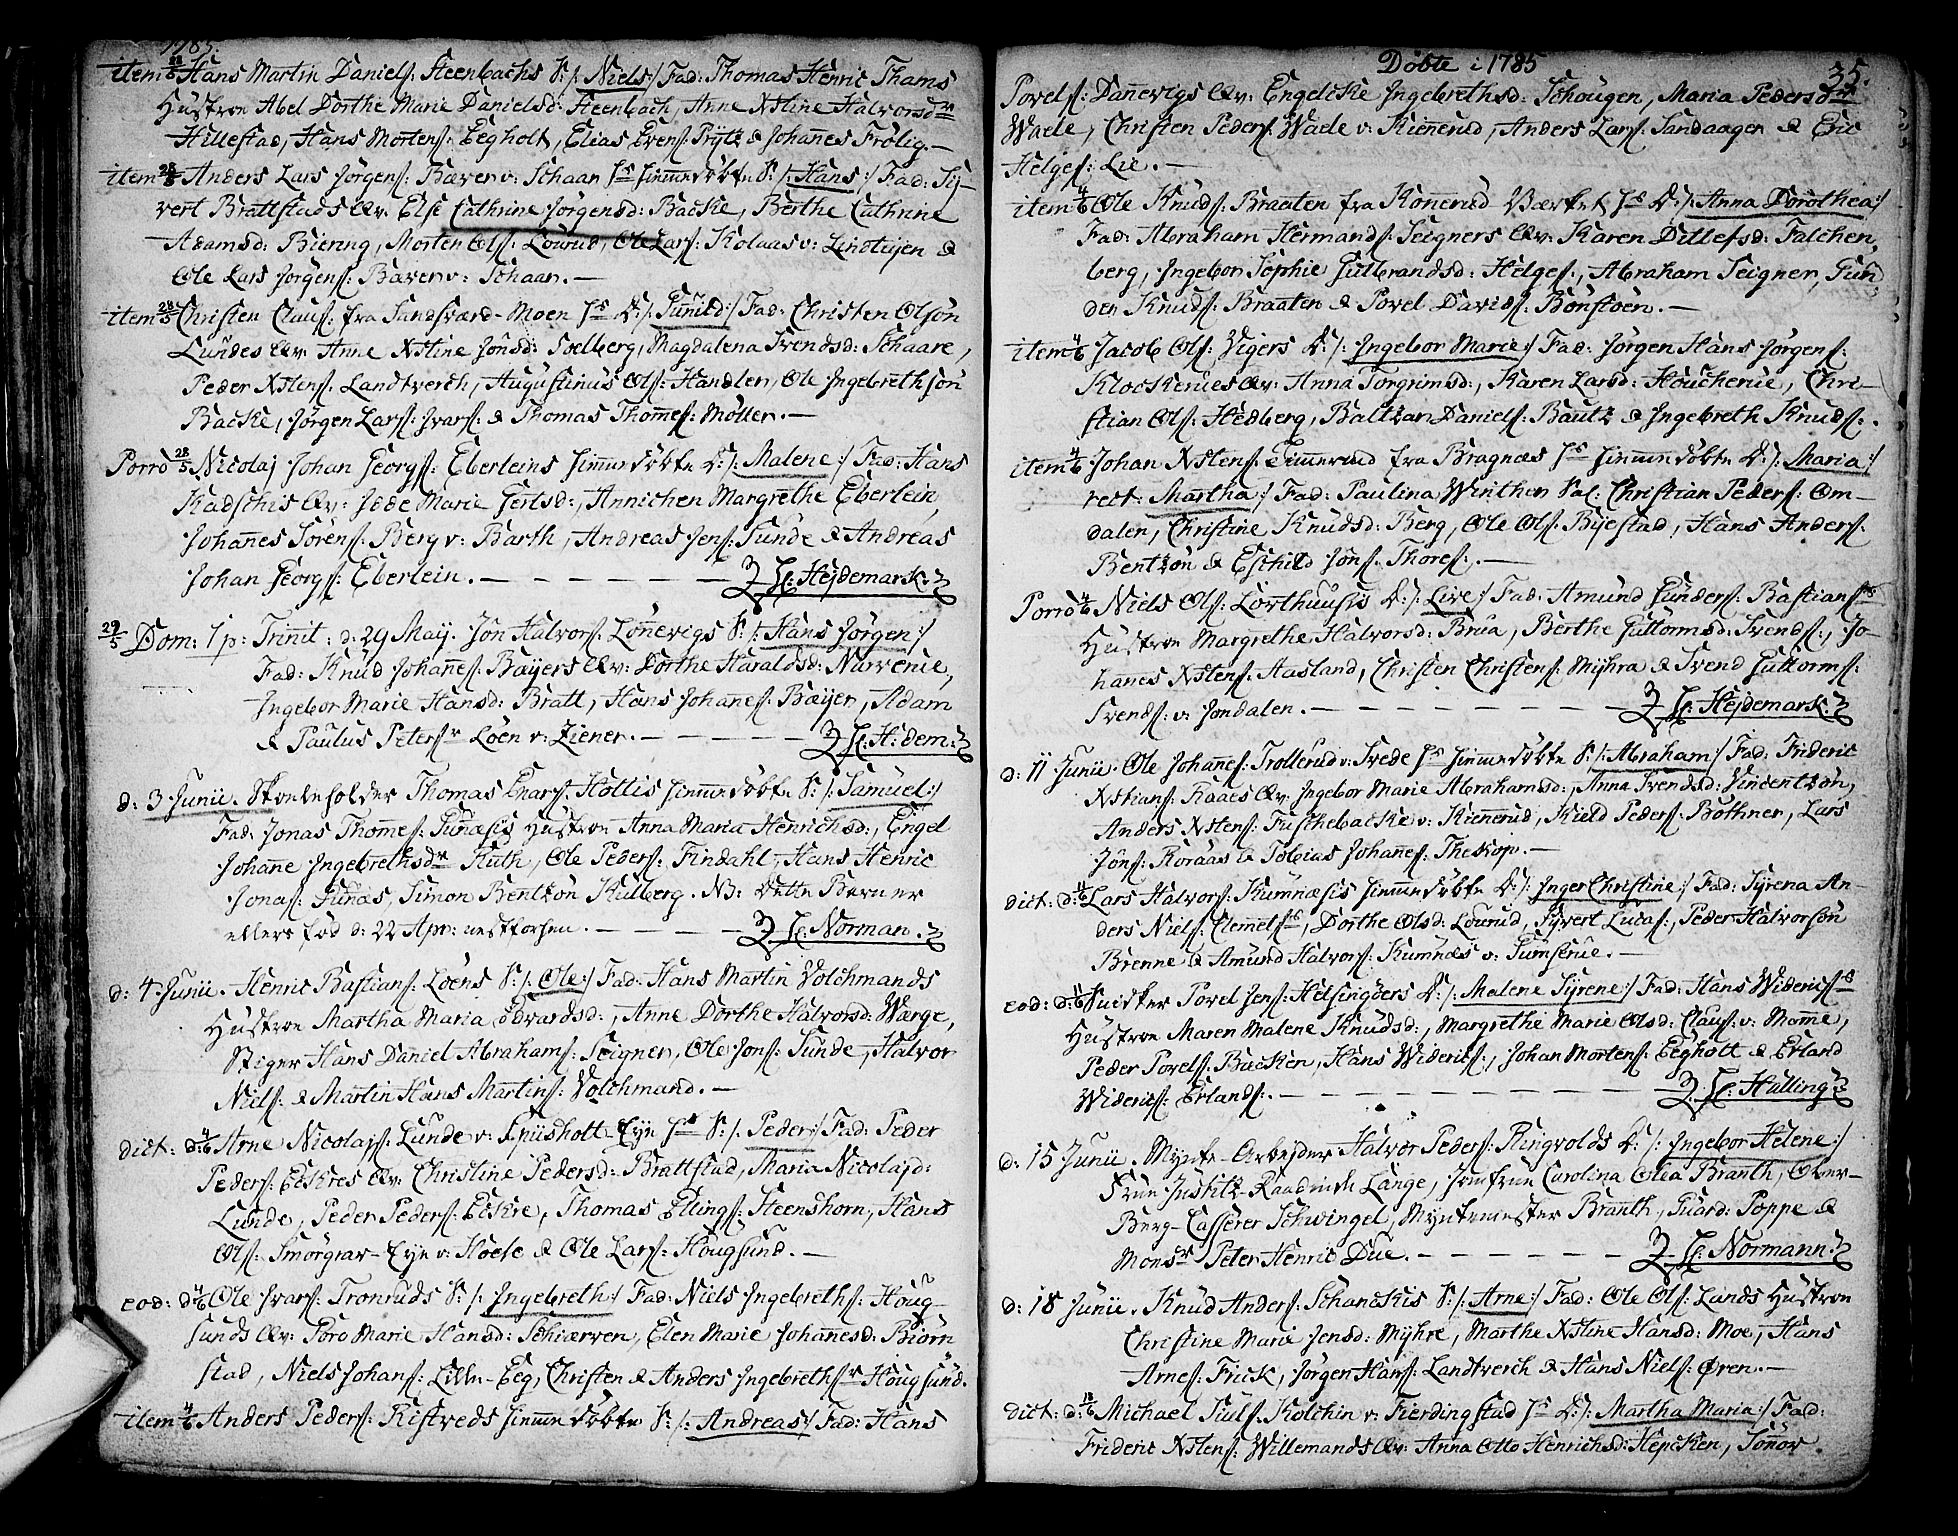 1785.
item 28/5 Hans Martin Daniels: Steenbachs S: /: Niels :/ Fad: Thomas Henric Thams
Hustroe Abel Dorthe Marie Danielsd: Steenbach, Anne Xstine Halvorsdr
Hillestad, Hans Mortens: Eegholt, Elias Evens: Prÿtz & Johannes Frölig. —
item 28/5 Anders Lars Jörgens: Bæver v: Schaar Hs Hiemmedöbte S: /: Hans :/ Fad: Si-
vert Brattstads Qv: Else Cathrine Jörgensd: Backe, Berthe Cathrine
Adamsd: Biering, Morten Ols: Lourud, Ole Lars: Kolaas v: Lindteÿen &
Ole Lars Jörgens: Bæver v: Schaar. —
item 28/5 Christen Claus: fra Sandsværd-Moen Hs D: /: Gunild :/ Fad: Christen Olsön
Lundes Qv: Anne Xstine Jonsd: Soelberg, Magdalena Svendsd: Schaare,
Peder Xstens: Landtverch, Augustinus Ols: Handler, Ole Ingebrethsön
Backe, Jörgen Lars: Ivars: & Thomas Thomes: Möller. —
Porro 28/5 Nicolaj Johan Georgs: Eberleins Hiemmedöbte D: /: Malene :/ Fad: Hans
Kadschis Qv: Jæde Marie Gertsd:, Annichen Margrethe Eberlein,
Johannes Sörens: Berg v: Barth, Andreas Jens: Sunde & Andreas
Johan Georgs: Eberlein. — — — — — — H: Hejdemark.
29/5 Dom: 1 p: Trinit: d: 29 Maÿ. Jon Halvors: Lönnevigs S: /: Hans Jörgen :/
Fad: Knud Johannes: Baÿers Qv: Dorthe Haraldsd: Narverue,
Ingebor Marie Hansd: Bratt, Hans Johannes: Baÿer, Adam
& Paulus Petersr Löen v: Ziener. — — — — — H: H:dem:
d: 3 Junii. Skoeleholder Thomas Enars: Hottis Hiemmedöbte S: /: Samuel :/
Fad: Jonas Thomes: Gunæsis Hustroe Anna Maria Henrichsd:, Engel
Johanne Ingebrethsdr Huth, Ole Peders: Findahl, Hans Henric
Jonas: Gunas, Simon Bentzon Kulberg. NB: Dette Barn er
ellers föd d: 22 Apr: nestforhen. — — — — H: Norman.
d: 4 Junii. Henric Bastians: Loens S: /: Ole :/ Fad: Hans Martin Volchmands
Hustroe Martha Maria Edvardsd:, Anne Dorthe Halvorsd: Wærge,
Stiger Hans Daniel Abrahams: Seigner, Ole Jons: Sunde, Halvor
Niels: & Martin Hans Martins: Volchmand. —
dict: d: 4/6 Arne Nicolajs: Lunde v: Spiisholt-Eÿe Hs S: /: Peder :/ Fad: Peder
Peders: Eeskres Qv: Christine Pedersd: Brattstad, Maria Nicolajd:
Lunde, Peder Peders: Eeskre, Thomas Ellings: Steenshorn, Hans
Ols: Smörgrav-Eÿe v: Hoele & Ole Lars: Hougsund. —
eod: d 4/6 Ole Ivars: Tronruds S: /: Ingebreth :/ Fad: Niels Ingebreths: Houg-
sunds Qv: Goro Marie Hansd: Schiærven, Elen Marie Johannesd: Biörn
stad, Niels Johans: Lille-Eeg, Christen & Anders Ingebrethsr Hougsund.
item 4/6 Anders Peders: Ristveds Hiemmedöbte S: /: Andreas :/ Fad: Hans
Döbte i 1785
35.
Povels: Dannevigs Qv: Engelcke Ingebrethsd: Schougen, Maria Pedersdr
Waele, Christen Peders: Waele v: Kiennerud, Anders Lars: Sandaagen & Eric
Helges: Lie. —
item 4/6 Ole Knuds: Braaten fra Konnerud Værket Hs D: /: Anna Dorothea :/
Fad: Abraham Hermands: Seigners Qv: Karen Ditlefsd: Falchen-
berg, Ingebor Sophie Gulbrandsd: Helges:, Abraham Seigner, Gun
der Knuds: Braaten & Povel Davids: Bönstoen. —
item 4/6 Jacob Ols: Vigers D: /: Ingebor Marie :/ Fad: Jörgen Hans Jörgens:
Klockerues Qv: Anna Torgrimsd:, Karen Larsd: Houcherue, Chri-
stian Ols: Hedberg, Baltzar Daniels: Bautz & Ingebreth Knuds:.
item 4/6 Johan Xstens: Timmerud fra Bragnæs Hs Hiemmedöbte D: /: Maria :/
rect: Martha :/ Fad: Paulina Winther Sal: Christian Peders: Om-
dalen, Christine Knudsd: Berg, Ole Ols: Bÿestad, Hans Anders:
Bentzon & Eschild Jons: Thores:. —
Porro 4/6 Niels Ols: Lorthuusis D: /: Live :/ Fad: Amund Gunders: Bastians:s
Hustroe Margrethe Halvorsd: Brua, Berthe Guttormsd: Svends:, Jo-
hanes Xstens: Aasland, Christen Christens: Mÿhra & Svend Guttorms:
Svends: v: Jondalen. — — — — — — — H: Hejdemark.
d: 11 Junii. Ole Johannes: Trollerud v: Svede Hs Hiemmedöbte S: /: Abraham :/ Fad: Frideric
Xstians: Raaes Qv: Ingebor Marie Abrahamsd:, Anna Svendsd: Vincentzon,
Anders Xstens: Fuschebacke v: Kiennerud, Kield Peders: Böthner, Lars
Jöns: Roraas & Tobias Johannes: Theskop. —
dict: d: 11/6 Lars Halvors: Kumnæsis Hiemmedöbte D: /: Inger Christine :/ Fad: Sÿrena An-
ders Niels: Clemets:s, Dorthe Olsd: Lourud, Sÿvert Lucas:, Peder Halvorsön
Brenne & Amund Halvors: Kumnæs v: Sumserue. —
eod: d: 11/6 Snedker Povel Jens: Helsingöers D: /: Malene Sÿrene :/ Fad: Hans Widerics:s
Hustroe Maren Malene Knudsd:, Margrethe Marie Olsd: Claus: v: Momme,
Peder Povels: Backen, Hans Widerics:, Johan Mortens: Eegholt & Erland
Widerics: Erlands:. — — — — — — — — H: Hulling.
d: 15 Junii. Mÿnte-Arbejder Halvor Peders: Ringvolds D: /: Ingebor Helene :/
Frue Justitz-Raadinde Lange, Jomfrue Carolina Olea Branth, Ober-
Berg-Casserer Schwingel, Mÿntemester Branth, Guard: Poppe &
Monsr Peter Henric Due. — — — — — — H: Normann.
d: 18 Junii. Knud Anders: Schanckis S: /: Arne :/ Fad: Ole Ols: Lunds Hustroe
Christine Marie Jensd: Mÿhre, Marthe Xstine Hansd: Moe, Hans
Arnes: Frick, Jörgen Hans: Landtverch & Hans Niels: Øren. —
dict: d: 18/6 Michael Siuls: Kolchin v: Fierdingstad Hs D: /: Martha Maria :/ Fad:
Frideric Xstens: Willemands Qv: Anna Otto Henrichsd: Hepcken, Sönor